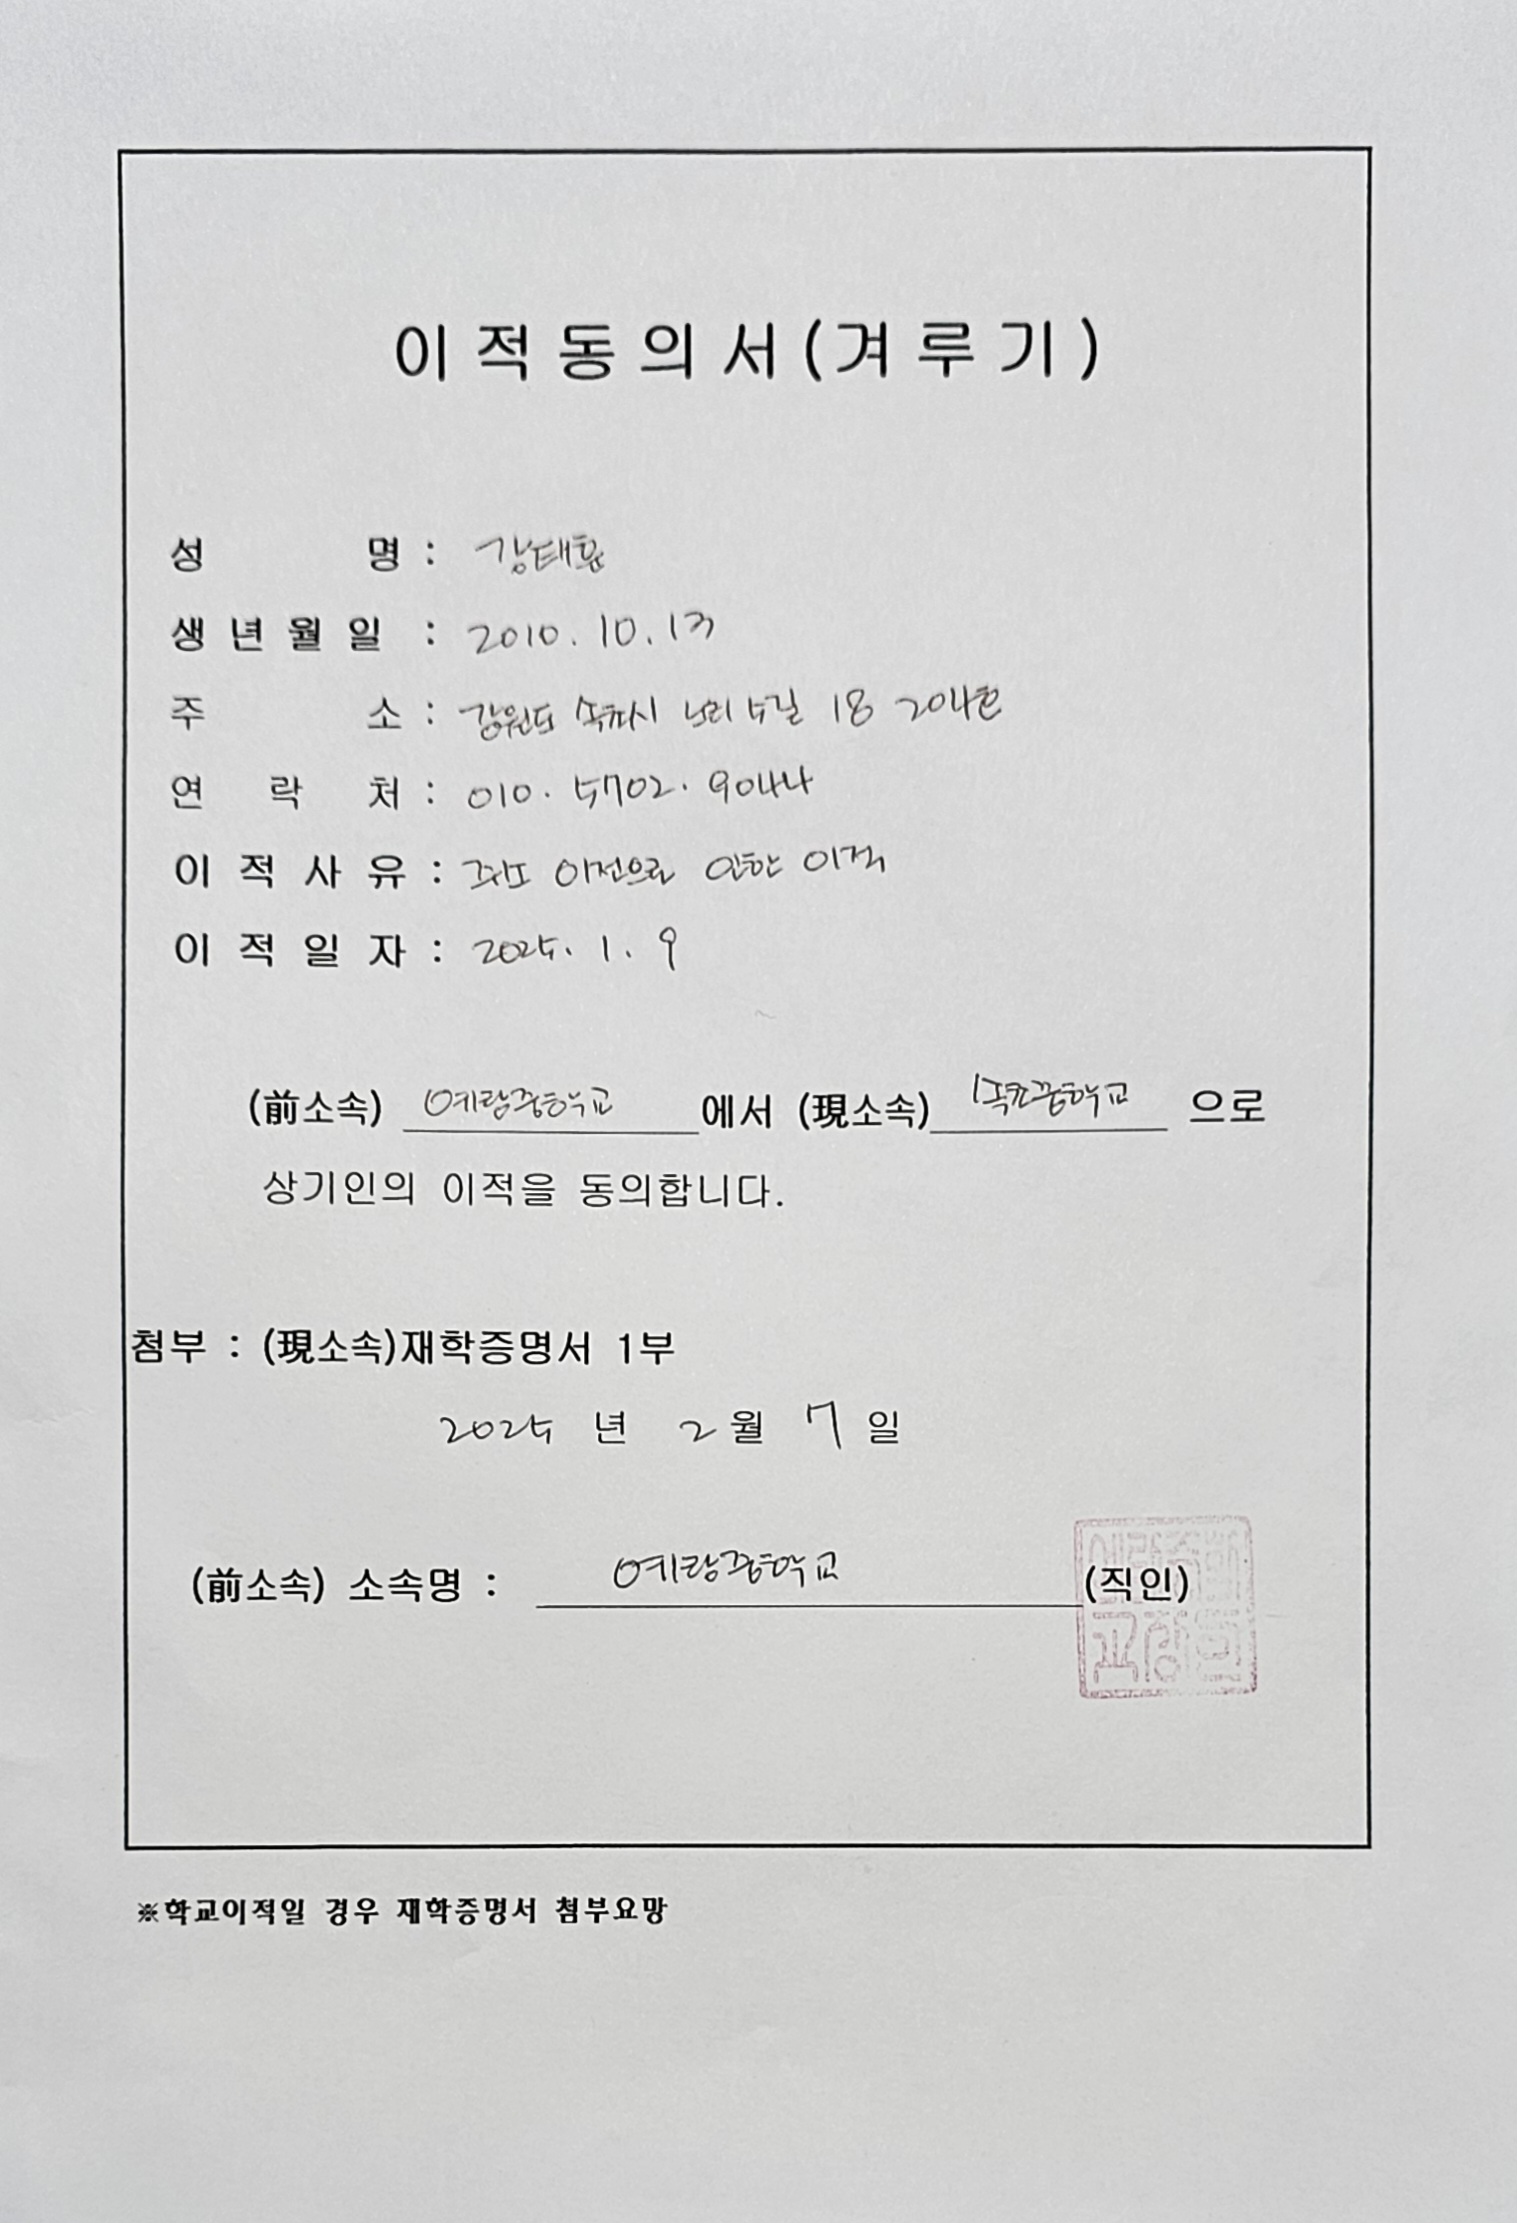 이적동의서(겨루기)
성 명 : 강태홍
생년월일 : 2010. 10. 13
주 소 : 강원도 속초시 노리5길 18 204호
연 락 처 : 010. 5702. 9044
이적사유 : 주소 이전으로 인한 이적
이적일자 : 2025. 1. 9
(前소속) 예람중학교 에서 (現소속) 속초중학교 으로
상기인의 이적을 동의합니다.
첨부 : (現소속)재학증명서 1부
2025 년 2 월 7 일
(前소속) 소속명 : 예람중학교 (직인)
※학교이적일 경우 재학증명서 첨부요망